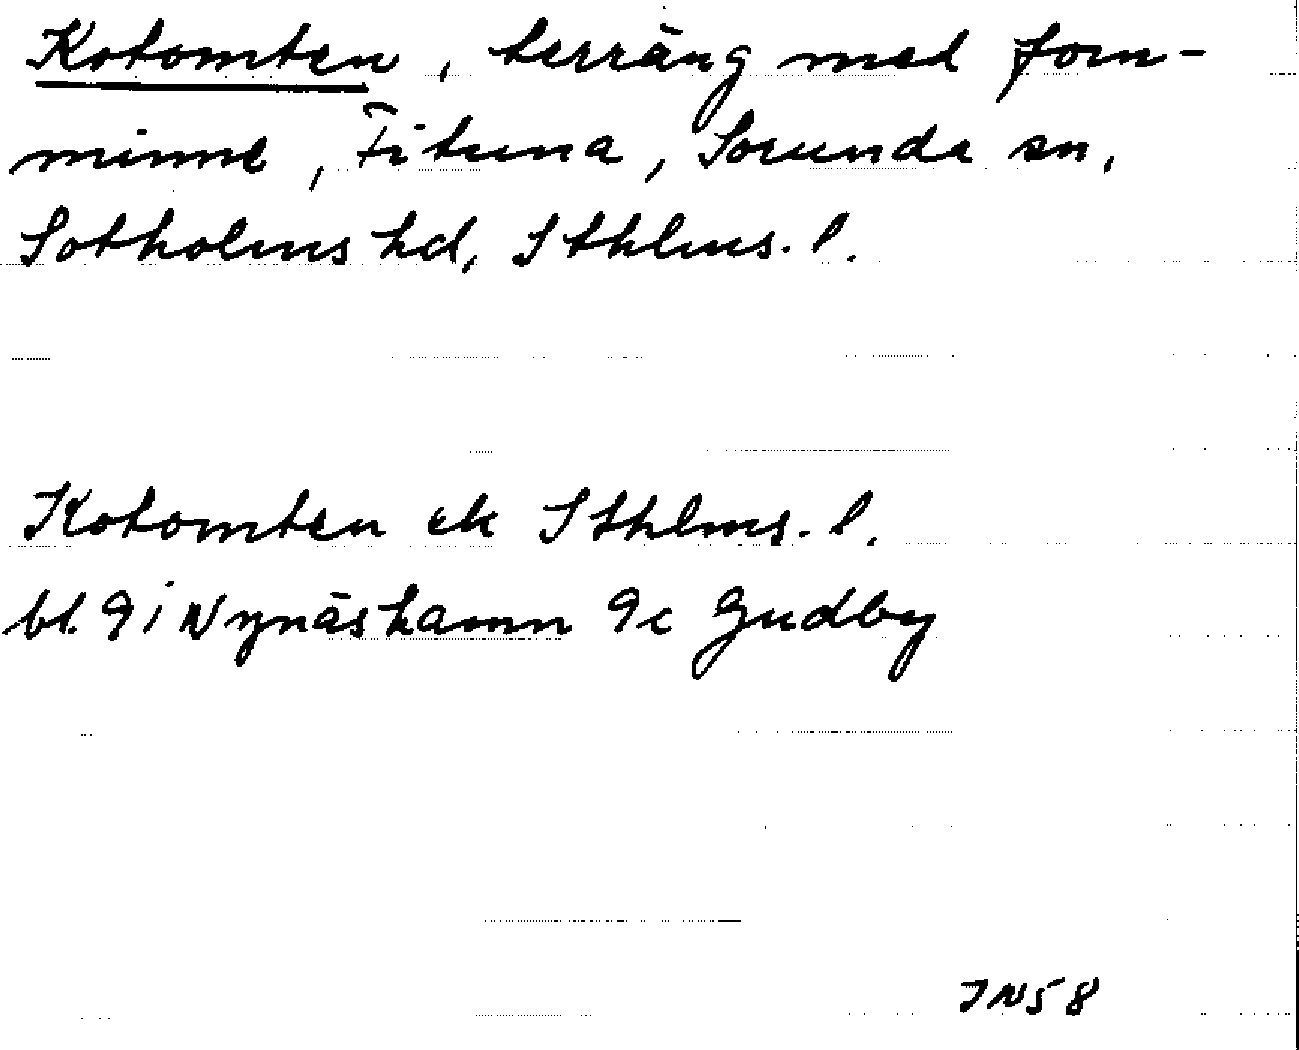 Kotomten, terräng med forn-
minne, Fituna, Sorunda sn,
Sotholms hd, Sthlms. l.
Kotomten ek Sthlms. l.
bl. 9 i Nynäshamn 9c Gudby
JN58